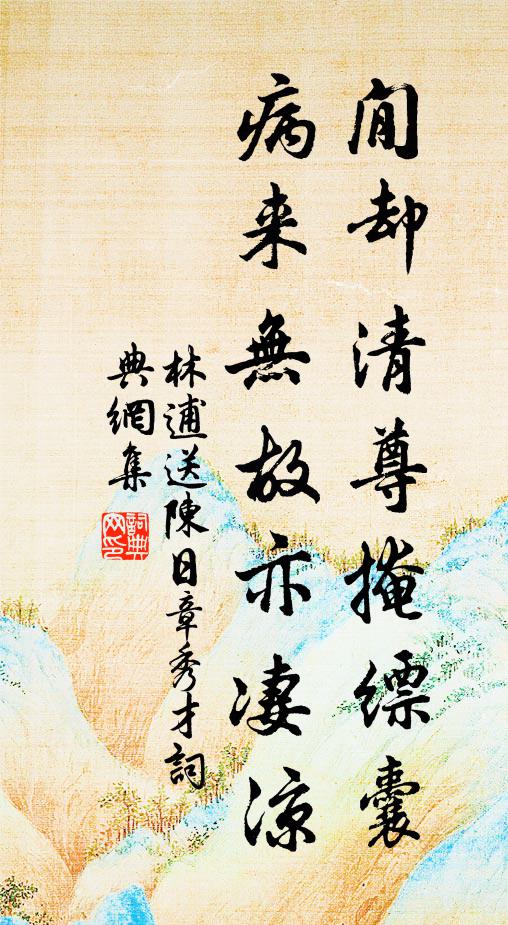 閒却清尊掩縹囊
病来無故亦淒涼
林逋送陳日章秀才詞
典網集
詞典網印